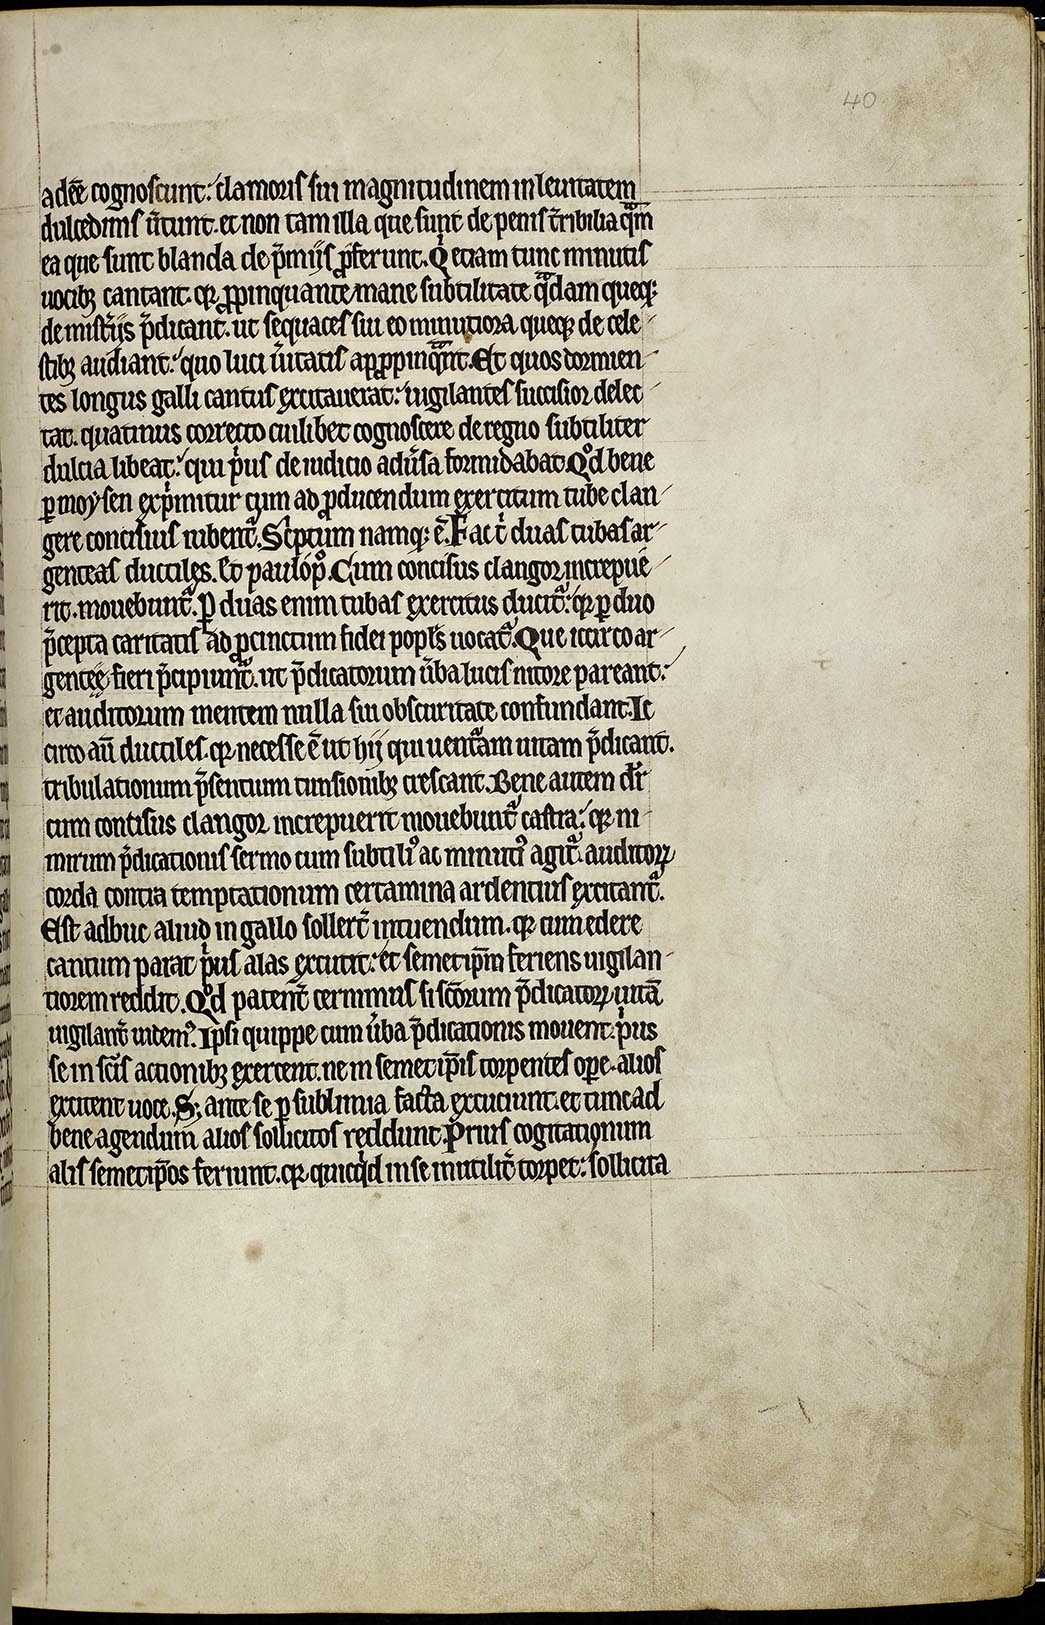 40
adeē cognoscunt: clamoris sui magnitudinem in leuitatem
dulcedinis ūtunt. et non tam illa que sunt de penis t̄ribilia qᵃm
ea que sunt blanda de p̄mijs p̄ferunt. Qͥ etiam tunc minutis
uocibꝫ cantant. qꝛ ꝓpinquante mane subtilitate qᵃdam queqꝫ
de mist̄ijs p̄dicant. ut sequaces sui eo minutiora queqꝫ de cele-
stibꝫ audiant: quo luci ūitatis apꝓpinqᵃnt. Et quos dormien-
tes longus galli cantus excitauerat: uigilantes succisior delec-
tat. quatinus correcto cuilibet cognoscere de regno subtiliter
dulcia libeat: qui pͥus de iudicio adūsa formidabat. Qᵒd bene
ꝑ moysen expͥmitur cum ad ꝓducendum exercitum tube clan-
gere concisius iubent᷑. Scͥptum namqꝫ ē. Fac tͥ duas tubas ar-
genteas ductiles. Et paulo pᵒ. Cum concisus clangor increpue-
rit. mouebunt᷑. Ꝑ duas enim tubas exercitus ducit᷑: qꝛ ꝑ duo
p̄cepta caritatis ad ꝓcinctum fidei popl̄s uocat᷑. Que iccirco ar-
genteę fieri p̄cipiunt᷑. ut p̄dicatorum ūba lucis nitore pareant:
et auditorum mentem nulla sui obscuritate confundant. Ic
circo aū ductiles. qꝛ necesse ē ut hij qui uent᷑am uitam p̄dicant.
tribulationum p̄sentium tunsionibꝫ crescant. Bene autem dr̄
cum concisus clangor increpuerit mouebunt᷑ castra: qꝛ ni-
mirum p̄dicationis sermo cum subtiliꝰ ac minutiꝰ agit᷑. auditoꝝ
corda contra temptationum certamina ardentius excitant᷑.
Est adhuc aliud in gallo sollert̄ intuendum. qꝛ cum edere
cantum parat pͥus alas excutit: et semetip̄m feriens uigilan-
tiorem reddit. Qᵒd patent̄ cernimus si sc̄orum p̄dicatoꝝ uitā
uigilant̄ uidemꝰ. Ipsi quippe cum ūba p̄dicationis mouent. pͥus
se in sc̄is actionibꝫ exercent. ne in semetip̄is torpentes oꝑe. alios
excitent uoce. Sꝫ ante se ꝑ sublimia facta excuciunt. et tunc ad
bene agendum alios sollicitos reddunt. Prius cogitationum
alis semetip̄os feriunt. qꝛ quicqͥd in se inutilit̄ torpet: sollicita